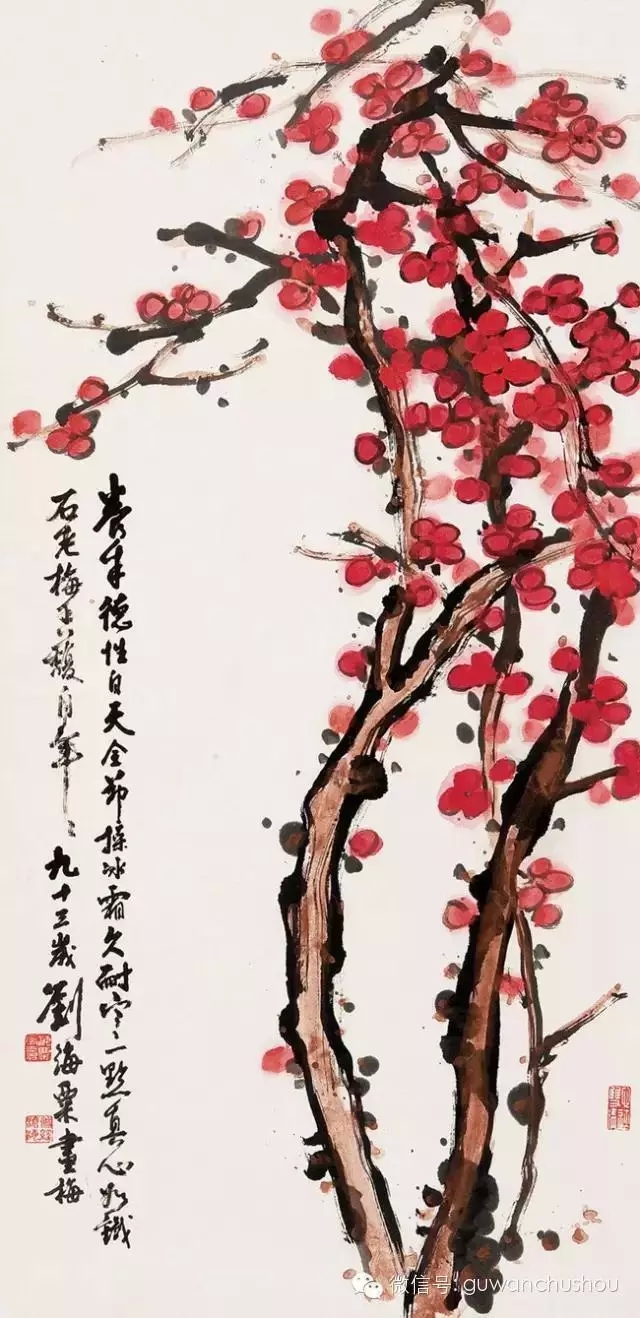 養成德性自天全節操冰霜久耐寒一點真心如鐵
石老梅香馥自年年九十三歲劉海粟畫梅
微信号: guwanchushou